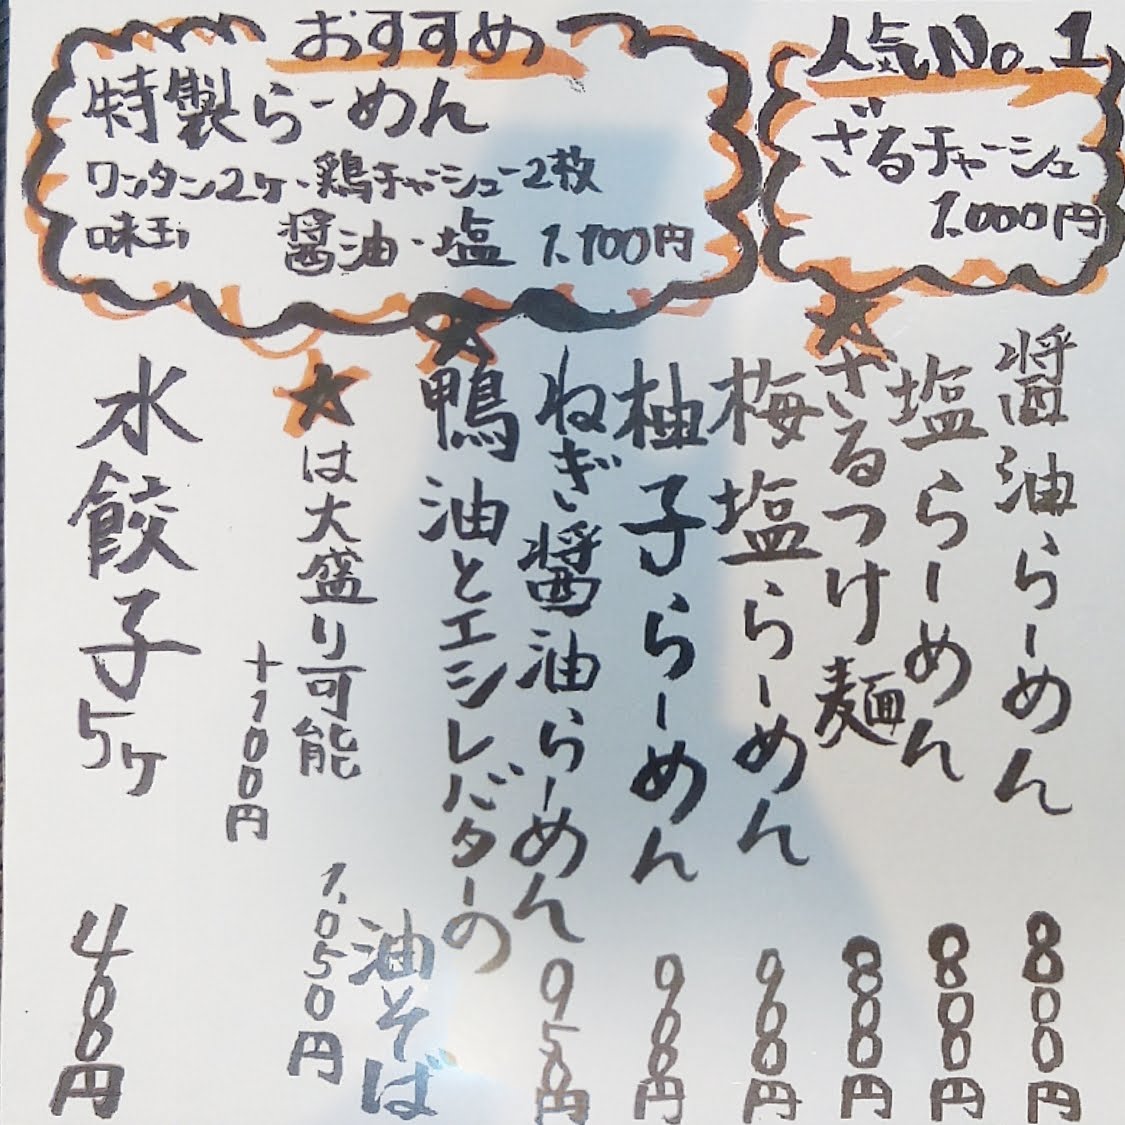 おすすめ
特製らーめん
ワンタン2ヶ・鶏チャーシュー2枚
味玉 醤油・塩 1,100円
人気No.1
ざるチャーシュ
1,000円
醤油らーめん 800円
塩らーめん 800円
★ざるつけ麺 800円
梅塩らーめん 900円
柚子らーめん 900円
ねぎ醤油らーめん 950円
★鴨油とエシレバターの
油そば
1,050円
★は大盛り可能
+100円
水餃子5ヶ 400円